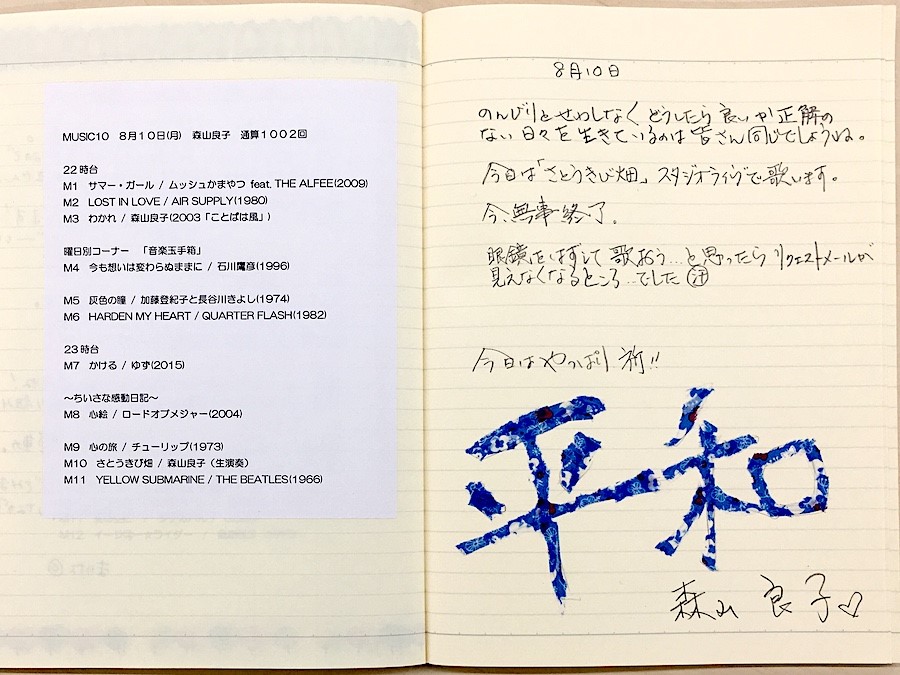 MUSIC10 8月10日(月) 森山良子 通算1002回
22時台
M1 サマー・ガール / ムッシュかまやつ feat. THE ALFEE(2009)
M2 LOST IN LOVE / AIR SUPPLY(1980)
M3 わかれ / 森山良子(2003「ことばは風」)
曜日別コーナー 「音楽玉手箱」
M4 今も想いは変わらぬままに / 石川鷹彦(1996)
M5 灰色の瞳 / 加藤登紀子と長谷川きよし(1974)
M6 HARDEN MY HEART / QUARTER FLASH(1982)
23時台
M7 かける / ゆず(2015)
〜ちいさな感動日記〜
M8 心絵 / ロードオブメジャー(2004)
M9 心の旅 / チューリップ(1973)
M10 さとうきび畑 / 森山良子(生演奏)
M11 YELLOW SUBMARINE / THE BEATLES(1966)
8月10日
のんびりとせわしなく どうしたら良いか正解の
ない日々を生きているのは皆さん同じでしょうね。
今日は「さとうきび畑」スタジオライヴで歌います。
今、無事終了。
眼鏡をはずして歌おう…と思ったらリクエストメールが
見えなくなるところ…でした 汗
今日はやっぱり 祈!!
平和
森山良子♡